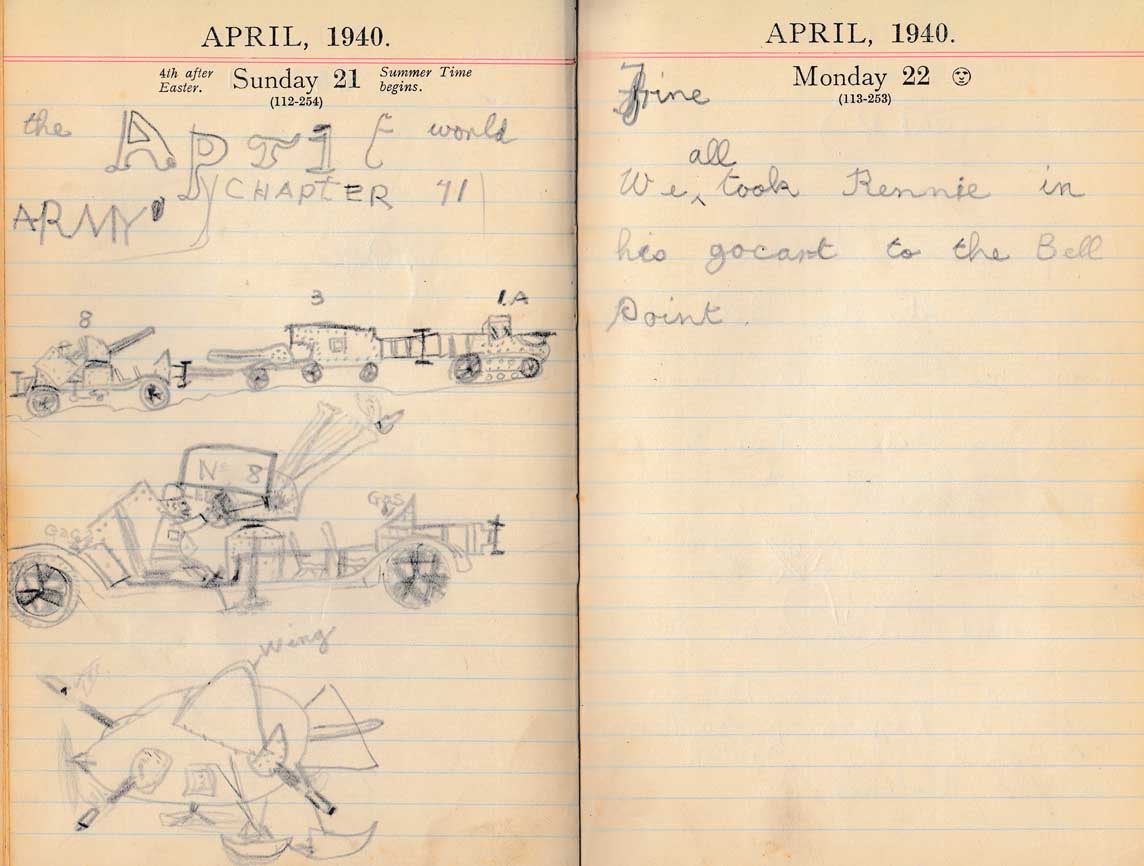 APRIL, 1940.
4th after Easter. Sunday 21 Summer Time begins.
(112-254)
the world
CHAPTER 71
ARMY
8 3 1A
Nº 8
Gas
Gas
Wing
APRIL, 1940.
Monday 22
(113-253)
Fine
all
We ‸ took Rennie in
his gocart to the Bell
Point.